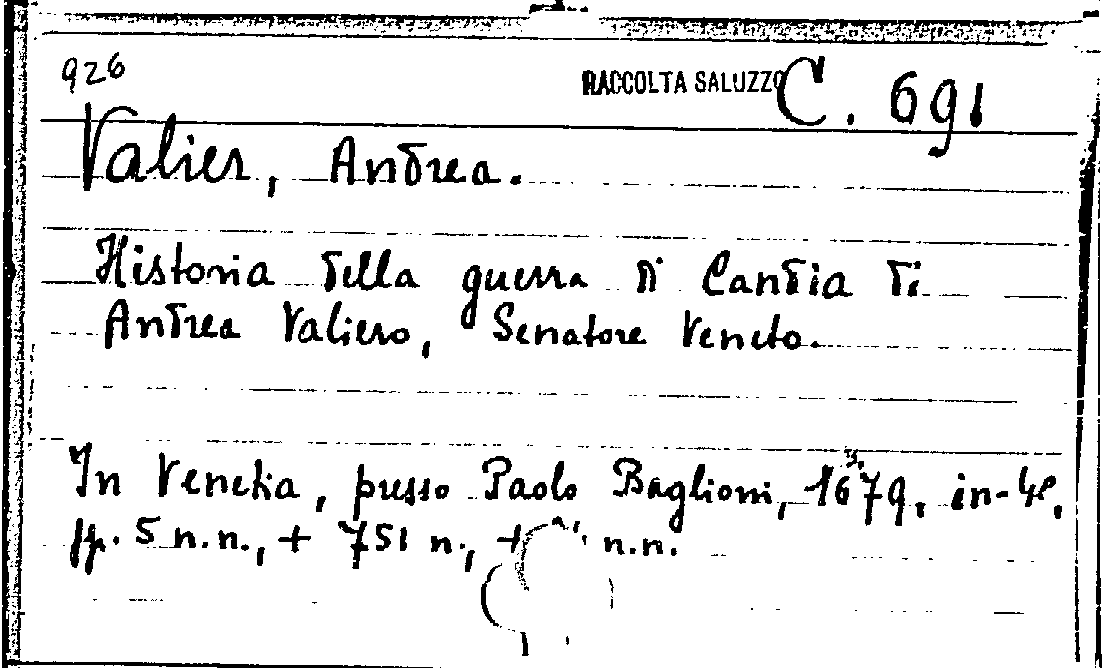 926
RACCOLTA SALUZZO C. 691
Valier, Andrea.
Historia della guerra di Candia di
Andrea Valiero, Senatore Veneto.
In Venetia, presso Paolo Baglioni, 1679, in-4º,
pp. 5 n.n., + 751 n., + n.n.